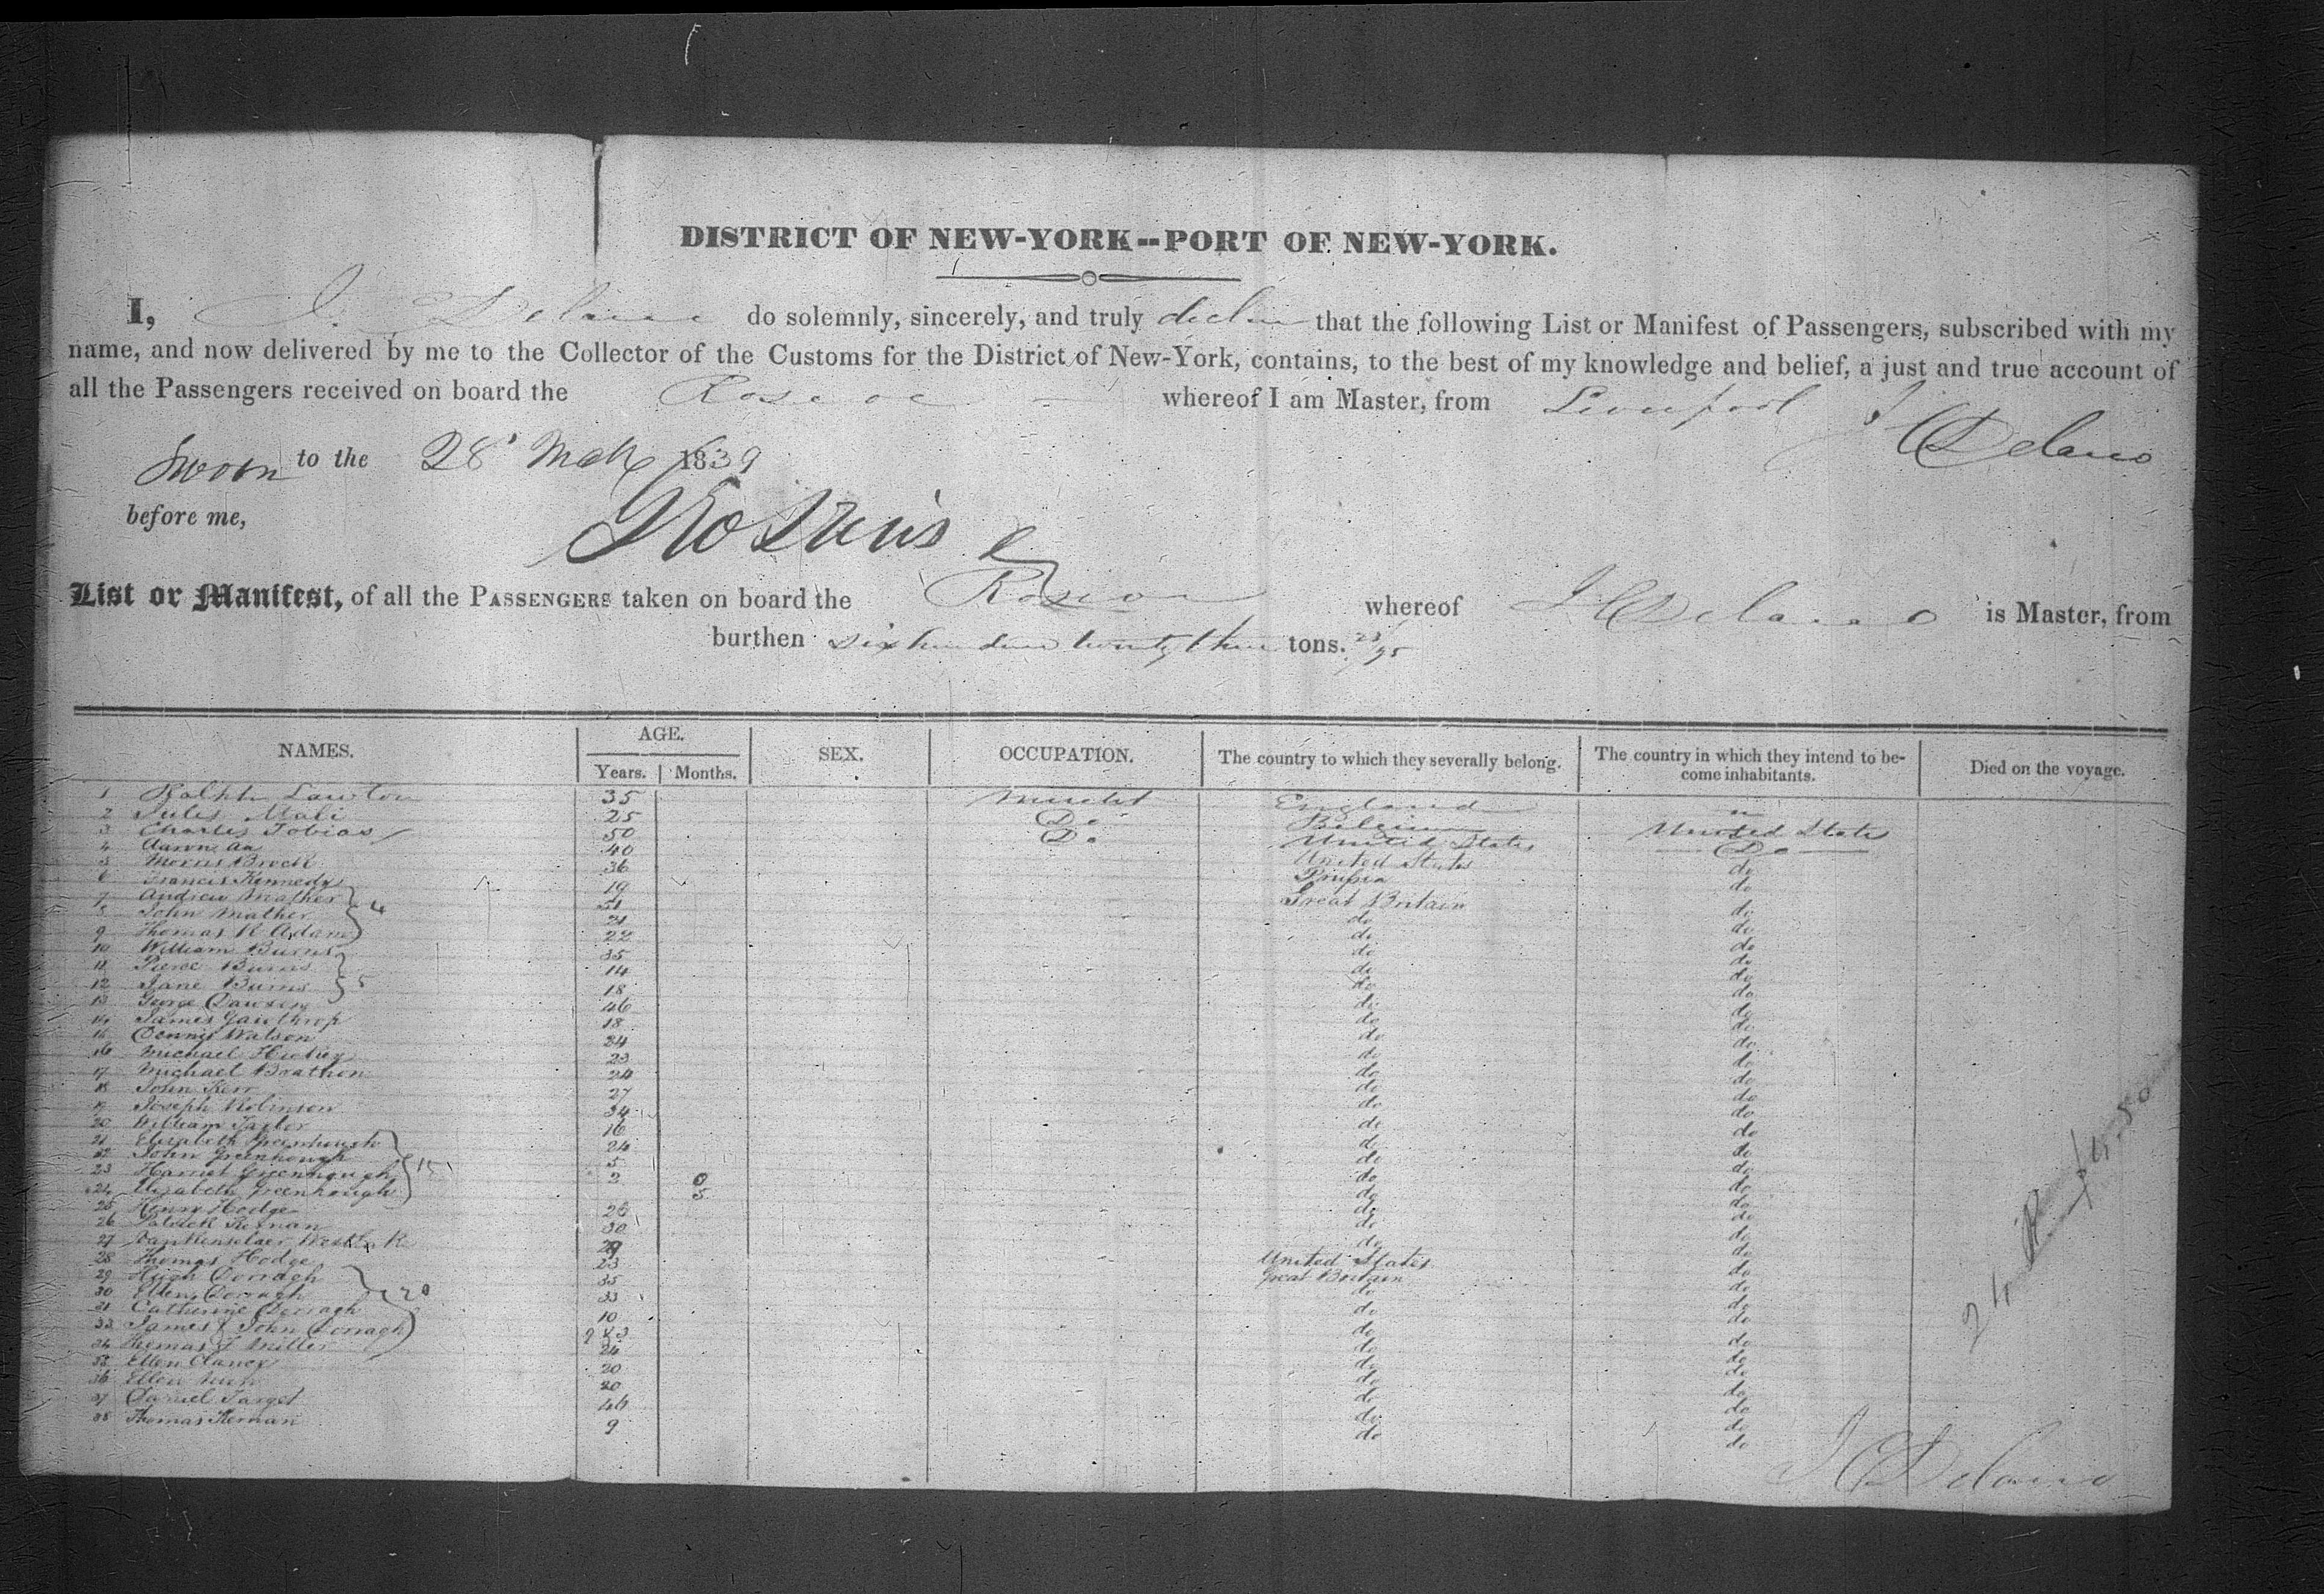 DISTRICT OF NEW-YORK--PORT OF NEW-YORK.
I, J. Delano do solemnly, sincerely, and truly declare that the following List or Manifest of Passengers, subscribed with my
name, and now delivered by me to the Collector of the Customs for the District of New-York, contains, to the best of my knowledge and belief, a just and true account of
all the Passengers received on board the Roscoe whereof I am Master, from Liverpool
J C Delano
Sworn to the 28 March 1839
before me,
List or Manifest, of all the PASSENGERS taken on board the Roscoe whereof J C Delano is Master, from
burthen six hundred twenty three tons. 23/95
NAMES. AGE. SEX. OCCUPATION. The country to which they severally belong. The country in which they intend to be- Died on the voyage.
Years. Months. come inhabitants.
1 Ralph Lawton 35 England
2 Jules Mali 25 Do Belgium United States
3 Charles Tobias 50 Do United States Do
4 Aaron 40 United States do
5 Morris Brock 36 Prussia do
6 Francis Kennedy 19 Great Britain do
7 Andrew Mather 51 do do
8 John Mather 21 do do
9 Thomas R Adam 22 do do
4
10 William Burns 35 do do
11 Pierce Burns 14 do do
12 Jane Burns 18 do do
5
13 George Dawson 46 do do
14 James Gawthrop 18 do do
15 Dennis Watson 24 do do
16 Michael Hickey 23 do do
17 Michael 24 do do
18 John Kerr 27 do do
19 Joseph Robinson 34 do do
20 William Taylor 16 do do
21 Elizabeth Greenhough 24 do do
22 John Greenhough 5 do do
23 Harriet Greenhough 2 0 do do
24 Elizabeth Greenhough 5 do do
15
25 Henry Hodge 26 do do
26 Patrick Kernan 30 do do
27 Van Renselaer 29 United States do
28 Thomas Hodge 23 Great Britain do
29 Hugh Dorragh 35 do do
30 Ellen Dorragh 33 do do
31 Catherine Dorragh 10 do do
33 James & John Dorragh 9 & 3 do do
20
34 Thomas J Miller 24 do do
35 Ellen Clancy 20 do do
36 Ellen 20 do do
37 Daniel Target 46 do do
38 Thomas Kernan 9 do do
J C Delano